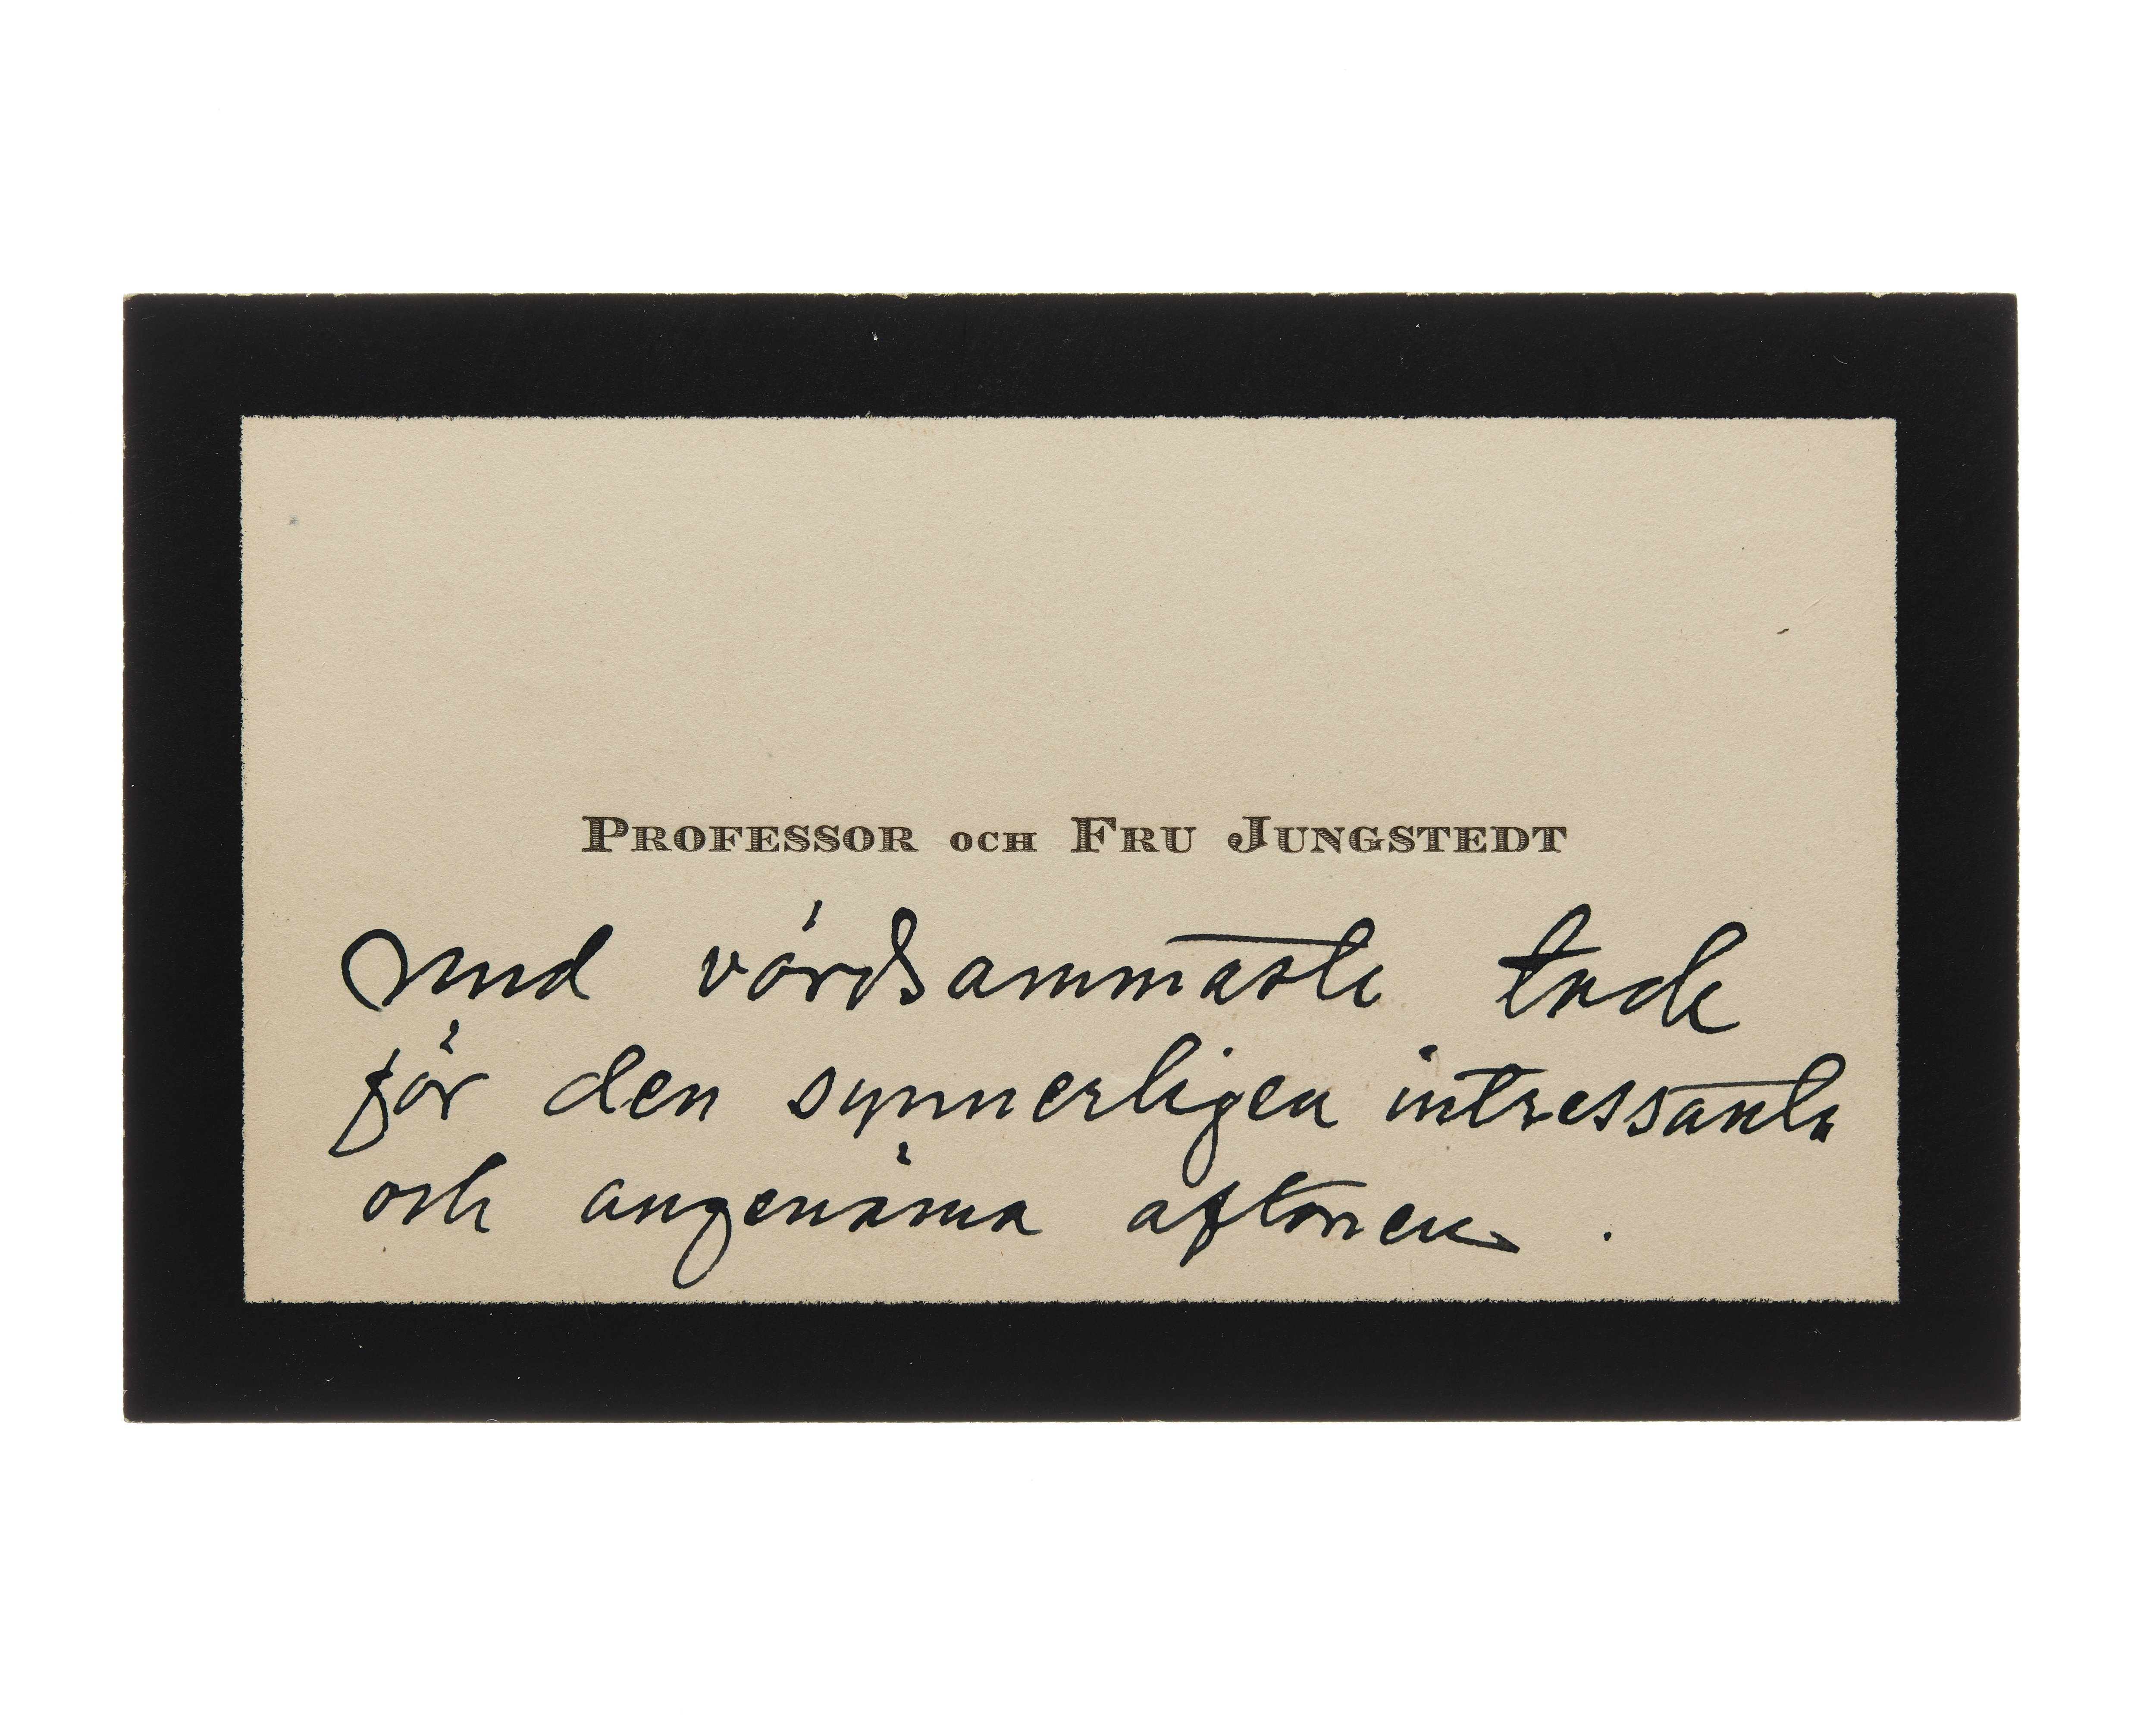 PROFESSOR OCH FRU JUNGSTEDT
med vördsammaste
för den synnerligen intressanta
och angenäma aftonen.